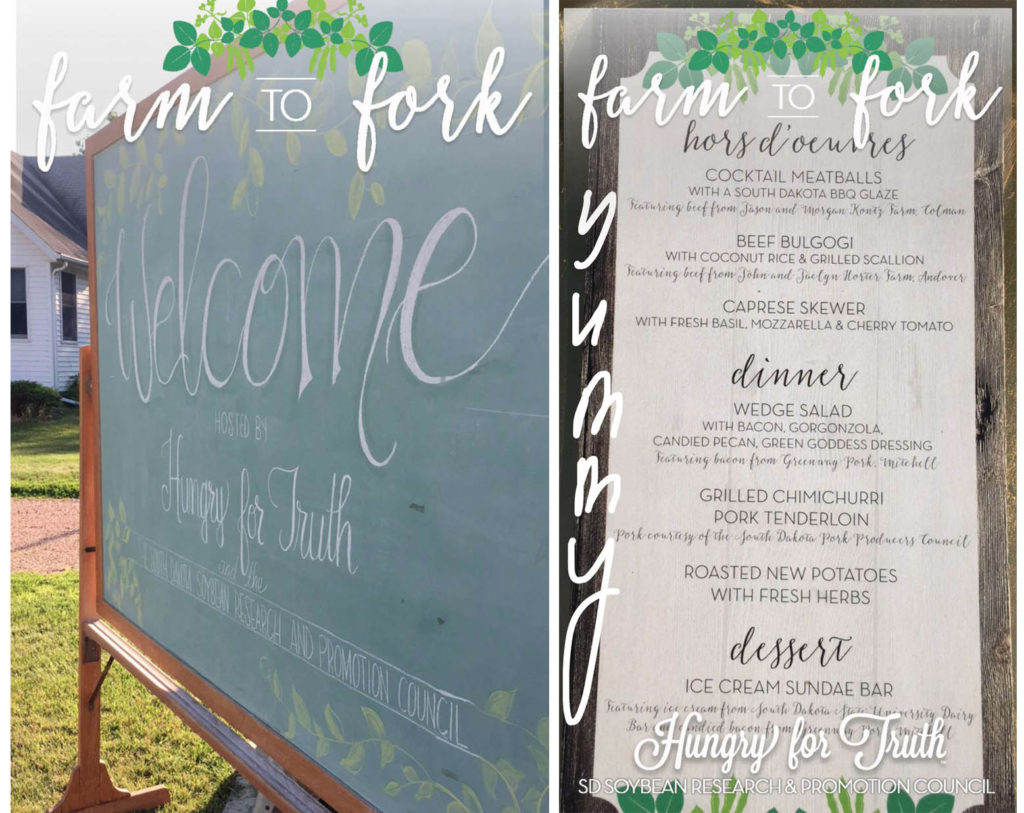 farm TO fork
Welcome
HOSTED BY
Hungry for Truth
and the
SOUTH DAKOTA SOYBEAN RESEARCH AND PROMOTION COUNCIL
farm TO fork
yummy
hors d'oeuvres
COCKTAIL MEATBALLS
WITH A SOUTH DAKOTA BBQ GLAZE
Featuring beef from Jason and Morgan Kontz Farm, Colman
BEEF BULGOGI
WITH COCONUT RICE & GRILLED SCALLION
Featuring beef from John and Jaclyn Horter Farm, Andover
CAPRESE SKEWER
WITH FRESH BASIL, MOZZARELLA & CHERRY TOMATO
dinner
WEDGE SALAD
WITH BACON, GORGONZOLA,
CANDIED PECAN, GREEN GODDESS DRESSING
Featuring bacon from Greenway Pork, Mitchell
GRILLED CHIMICHURRI
PORK TENDERLOIN
Pork courtesy of the South Dakota Pork Producers Council
ROASTED NEW POTATOES
WITH FRESH HERBS
dessert
ICE CREAM SUNDAE BAR
Featuring ice cream from South Dakota State University Dairy
Bar and candied bacon from Greenway Pork, Mitchell
Hungry for Truth
SD SOYBEAN RESEARCH & PROMOTION COUNCIL